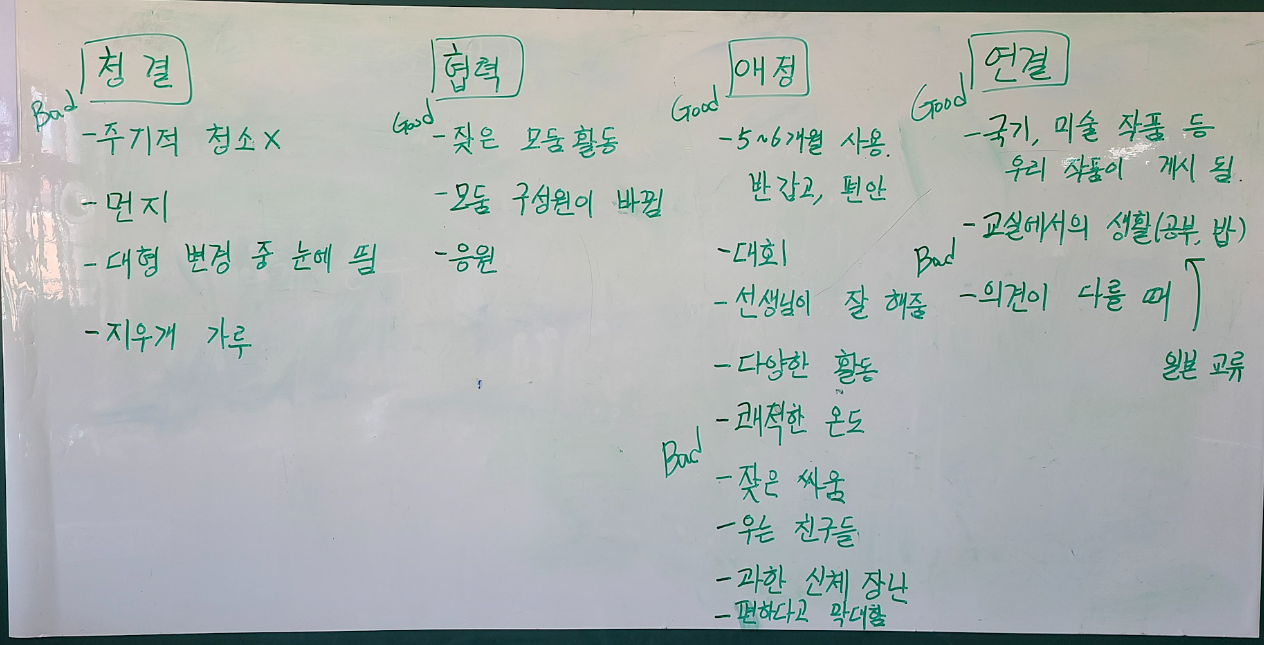 청결
Bad
-주기적 청소X
-먼지
-대형 변경 중 눈에 띔
-지우개 가루
협력
Good
-잦은 모둠활동
-모둠 구성원이 바뀜
-응원
애정
Good
-5~6개월 사용.
반갑고, 편안
-대회
-선생님이 잘 해줌
-다양한 활동
-쾌적한 온도
Bad
-잦은 싸움
-우는 친구들
-과한 신체 장난
-편하다고 막대함
연결
Good
-국기, 미술 작품 등
우리 작품이 게시 됨.
-교실에서의 생활(공부, 밥)
Bad
-의견이 다를 때
일본 교류